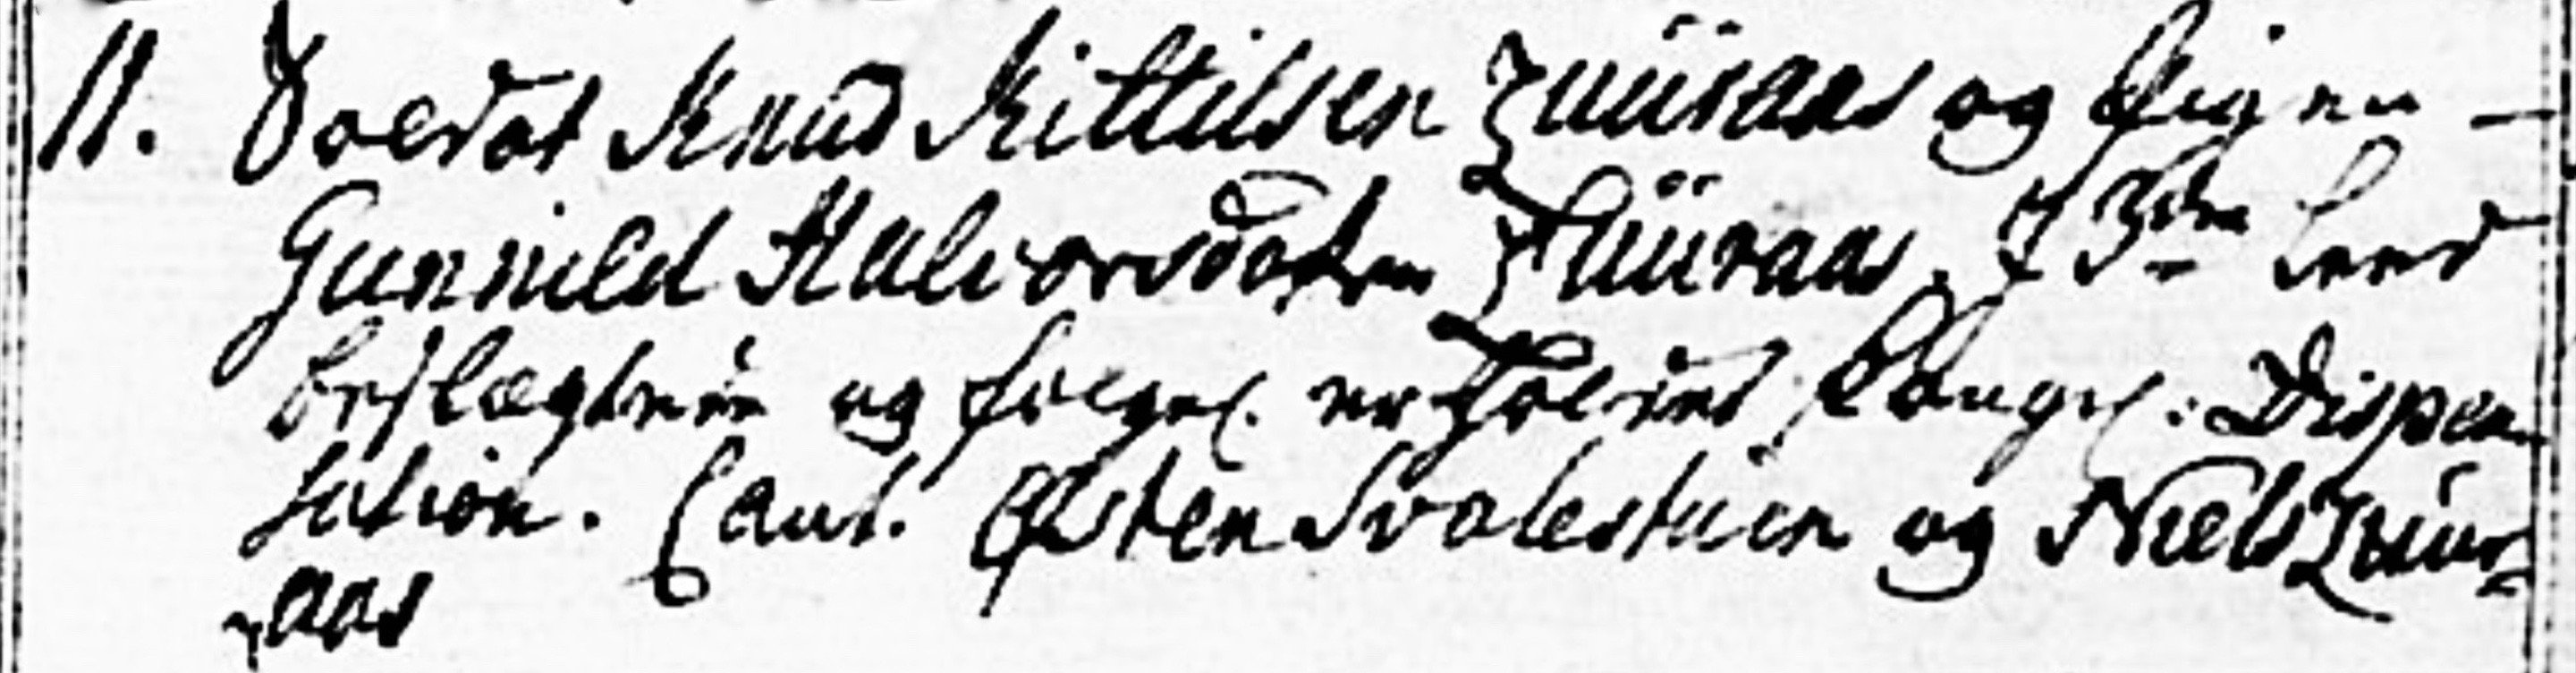 11. Soldat Knud Kittilsen Juüraas og Pigen
Gunnild Halvorsdatter Juüraas. I 3die Leed
beslægtede og følgel. erholdet Kongel: Dispen-
sation. Caut. Østen Svalestuen og Niels Juur-
raas